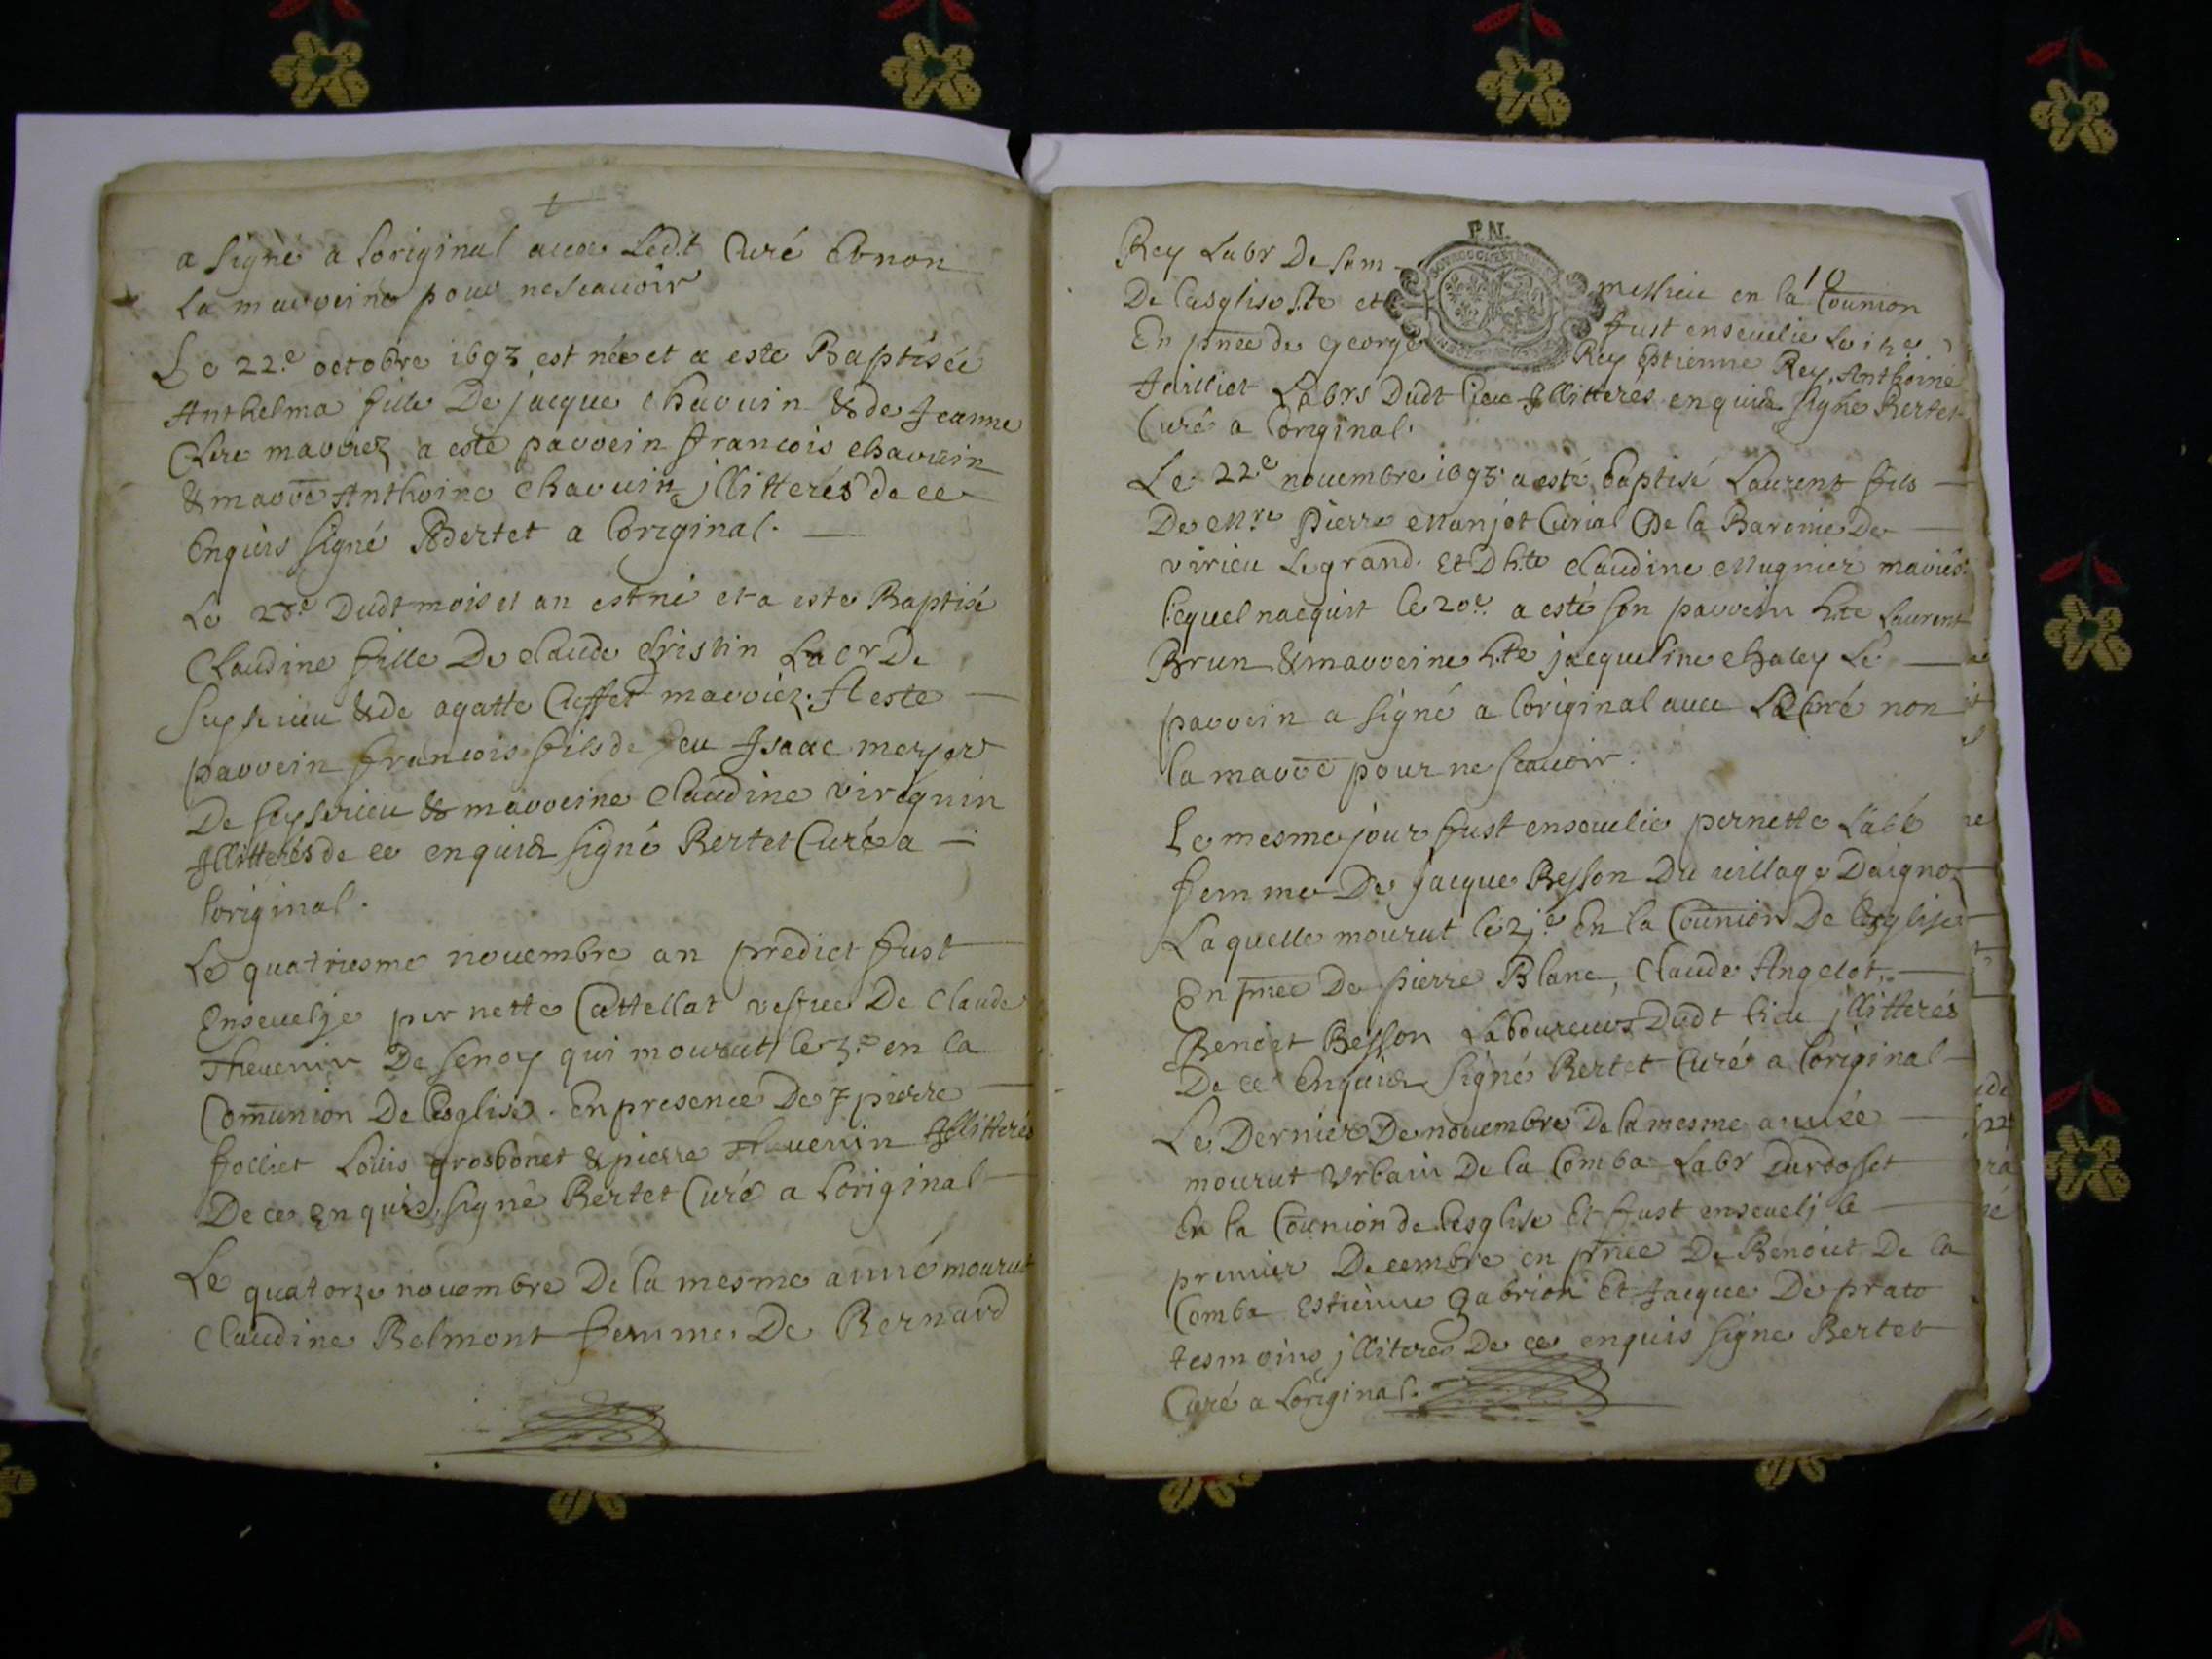 a signé a Loriginal avec Led.t Curé Et non
La marreine pour ne scavoir
Le 22.e octobre 1693 est née et a este Baptisée
Anthelma fille De jacque chavuin & de Jeanne
Clerc mariez a esté parrein francois chavuin
& marre Anthoine chavuin illitterés de ce
Enquis signé Bertet a Loriginal.
Le 28.e Dudt mois et an est né et a este Baptisé
Claudine fille De claude Cristin Labr De
Seyserieu & de agatte Cuffet mariez. A este
parrein francois fils de feu Isaac
De seyserieu & marreine Claudine virignin
Illitterés de ce enquis signé Bertet Curé a
loriginal.
Le quatriesme novembre an predict fust
Ensevelye pernette Cattellat vefve De Claude
Thevenin De senoy qui mourut le 3.e en la
Comunion De Lesglise. En presence De pierre
folliet Louis grosbonet & pierre Thevenin Illitterés
De ce Enquis, signé Bertet Curé a Loriginal
Le quatorze novembre De la mesme anné mourut
Claudine Belmont femme De Bernard
P.N.
10
Rey Labr De sam - messieu en la Counion
De lasglise et fust ensevelie Le
En pnce de george Rey Estienne Rey, Anthoine
Juilliet Labrs Dudt lieu Illitterés enquis signé Bertet
Curé a Loriginal.
Le 22e novembre 1693 a esté baptisé Laurent fils
De Mre Pierre Manjot Curial De la Baronie De
virieu Legrand. Et D h.te claudine Mugnier mariés.
lequel naequit le 20e. a esté son parrein h.te Laurent
Brun & marreine h.te jacqueline chaley Le
parrein a signé a Loriginal avec Led Curé non
la marre pour ne scavoir.
Le mesme jour fust ensevelie pernette Labbé
femme De Jacque Besson Du village Daignoz
Laquelle mourut le 21.e En la Counion De lesglise
En pnce De pierre Blanc, Claude Angelot,
Benoit Besson Laboureurs Dudt lieu illitterés
De ce Enquis signé Bertet Curé a Loriginal
Le Dernier De novembre De la mesme année
mourut Urbain De la Comba Labr Dardosset
En la Counion de lesglise Et fust ensevelj le
premier Decembre en pnce De Benoiet De la
Comba Estienne gabrion Et Jacque De prato
tesmoins jlliteres De ce enquis signe Bertet
Curé a Loriginal.